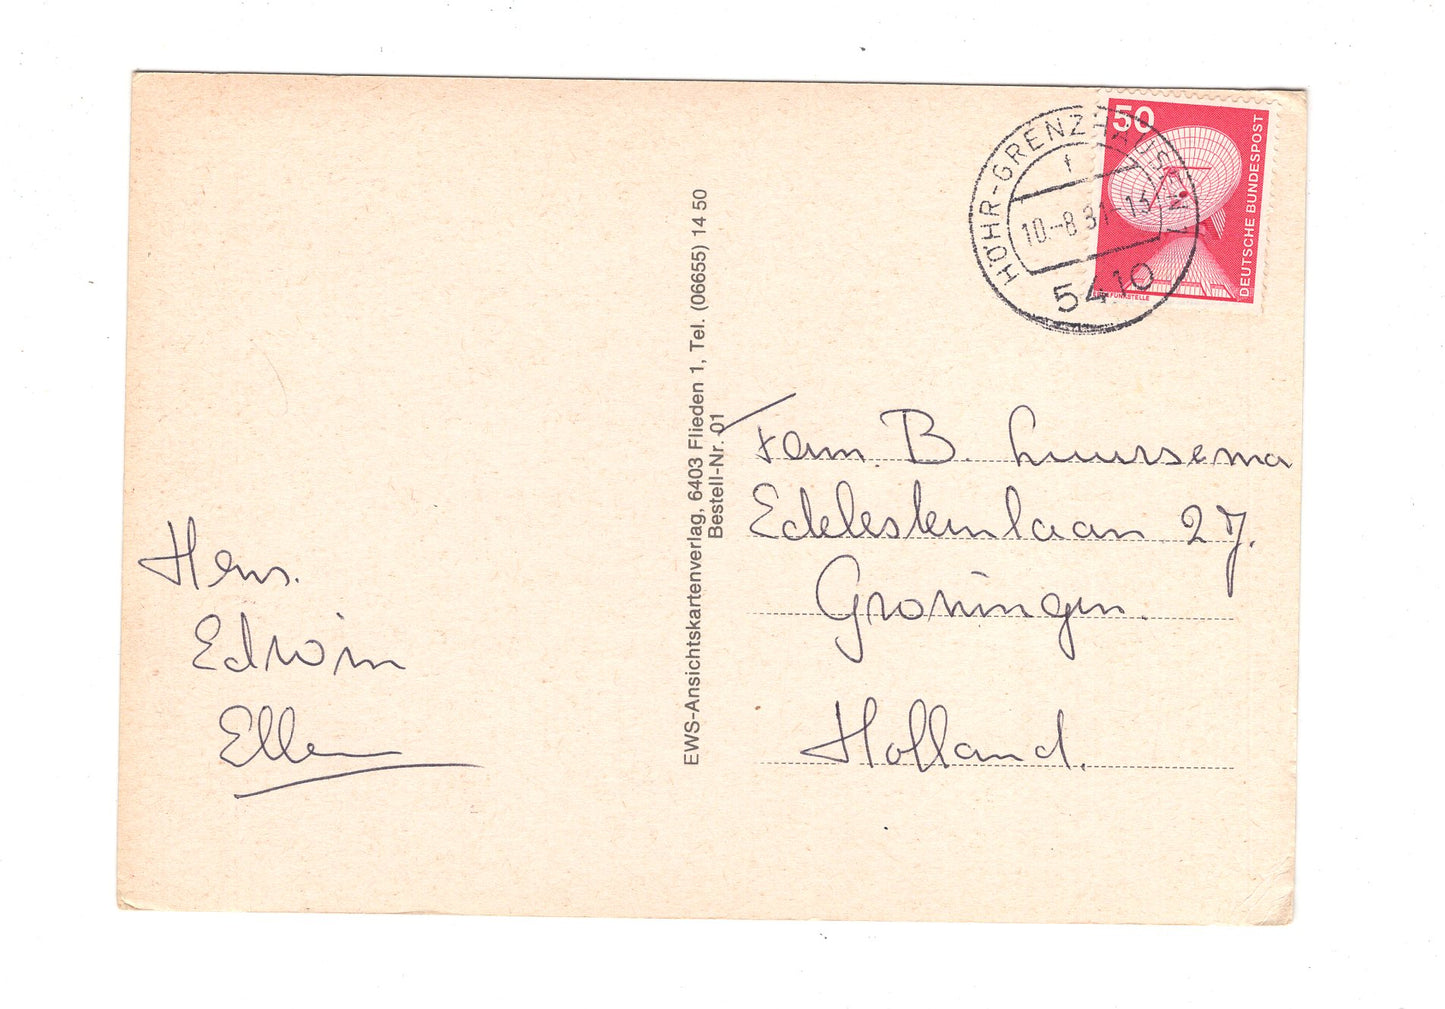 Hens.
Edwin
Ellen
EWS-Ansichtskartenverlag, 6403 Flieden 1, Tel. (06655) 14 50
Bestell-Nr. 01
50
DEUTSCHE BUNDESPOST
ERDEFUNKSTELLE
HÖHR-GRENZHAUSEN 1
f
10.-8.81-13
5410
Fam. B. Luursema
Edelesteenlaan 27.
Groningen.
Holland.